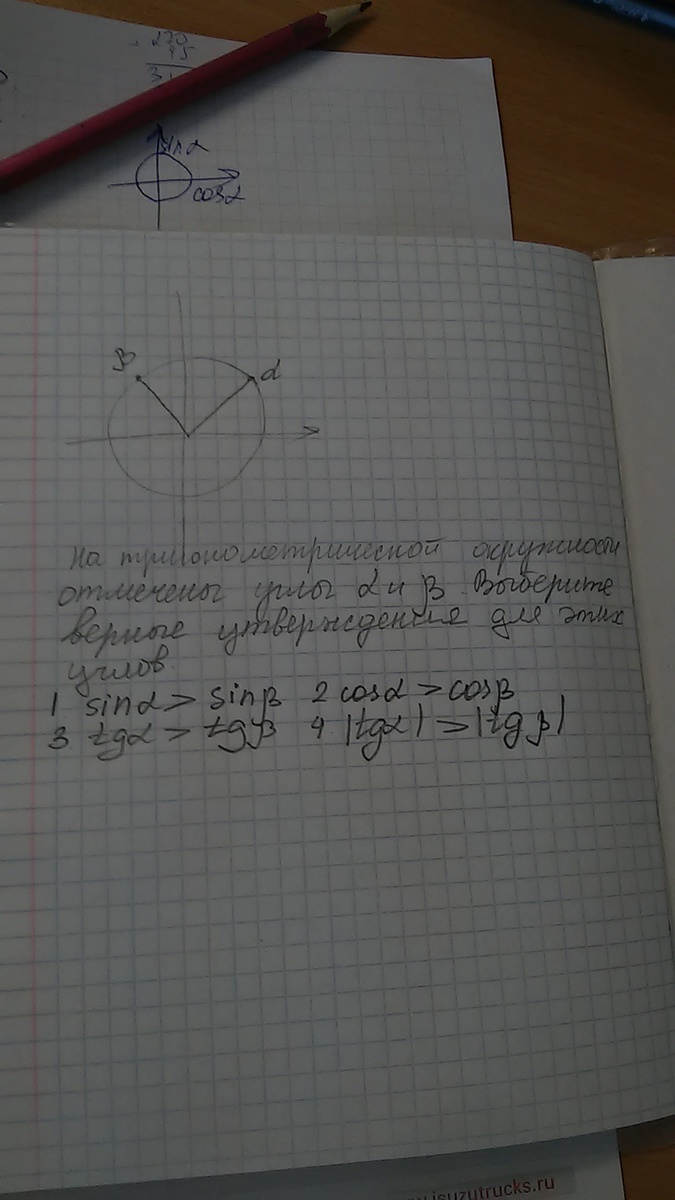 270
sinα
cosα
β
α
на тригонометрической окружности
отмечены углы α и β. Выберите
верные утверждения для этих
углов.
1 sinα > sinβ 2 cosα > cosβ
3 tgα > tgβ 4. |tgα| > |tgβ|
.isuzutrucks.ru